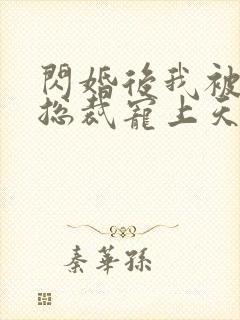 閃婚後我被
總裁寵上天
秦華孫